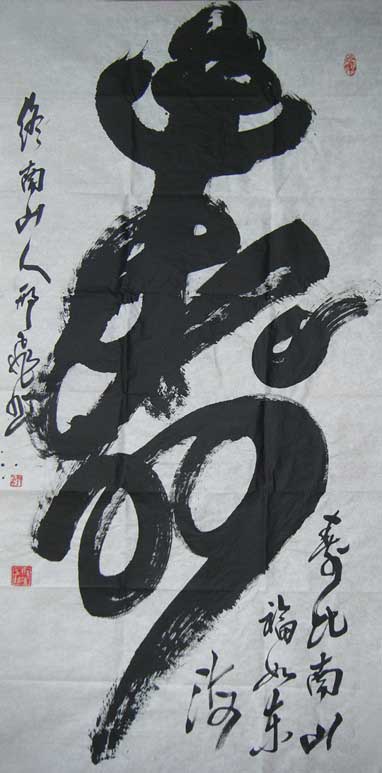 寿
寿比南山
福如东
海
终南山人邢飞书